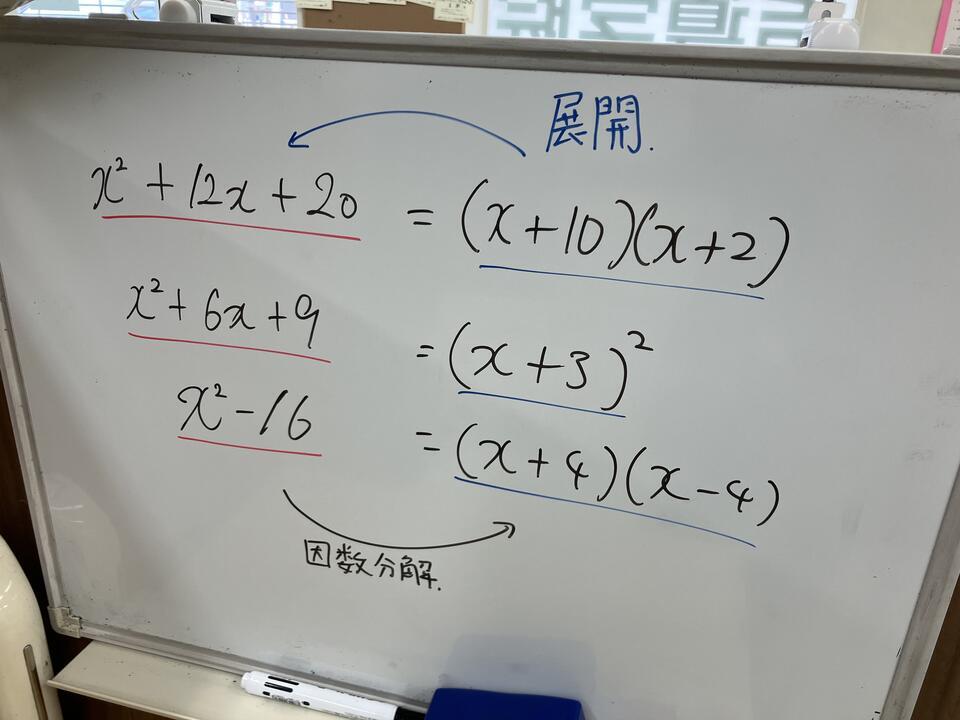 展開.
x² + 12x + 20 = (x + 10)(x + 2)
x² + 6x + 9 = (x + 3)²
x² - 16 = (x + 4)(x - 4)
因数分解.